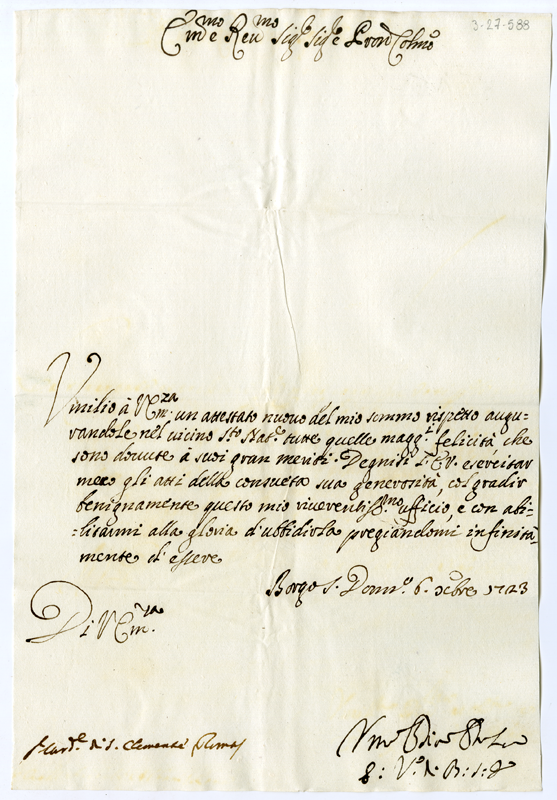 3-27-588
Em.mo e Reu.mo Sig.r Sig.r e Pron Colmo
Vmilio à V. Em.za un attestato nuouo del mio sommo rispetto augu-
randole nel uicino S.to Nat.e tutte quelle magg.ri felicità, che
sono douute à suoi gran meriti. Degnisi l'E.V. esercitar
meco gli atti della consueta sua generosità, col gradir
benignamente questo mio riuerentiss.mo ufficio, e con abi-
:litarmi alla gloria d'ubbidirla pregiandomi infinita-
mente d'essere
Borgo S. Donn.o 6. Xcbre 1723
Di V. Em.za
S.r Card.e di S. Clemente Roma
V. di B. S. D.